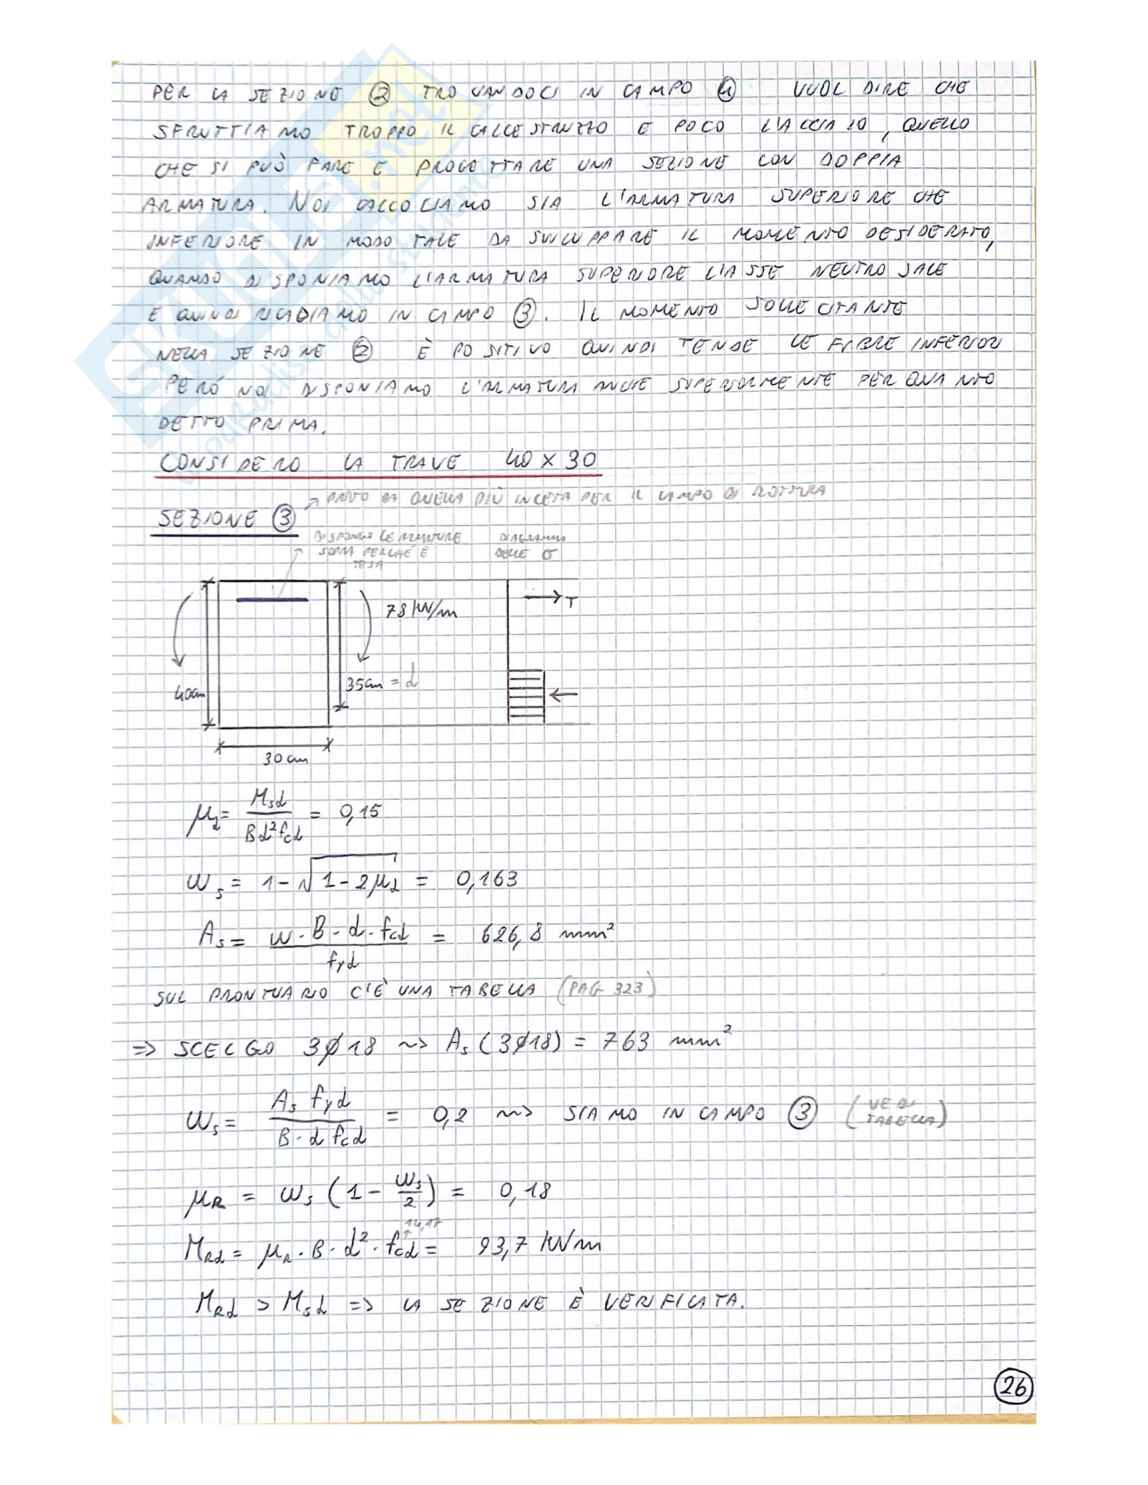 PER LA SEZIONE ② TROVANDOCI IN CAMPO ④ VUOL DIRE CHE
SFRUTTIAMO TROPPO IL CALCESTRUZZO E POCO L'ACCIAIO, QUELLO
CHE SI PUÒ FARE È PROGETTARE UNA SEZIONE CON DOPPIA
ARMATURA. NOI CALCOLIAMO SIA L'ARMATURA SUPERIORE CHE
INFERIORE IN MODO TALE DA SVILUPPARE IL MOMENTO DESIDERATO,
QUANDO DISPONIAMO L'ARMATURA SUPERIORE L'ASSE NEUTRO SALE
E QUINDI RICADIAMO IN CAMPO ③. IL MOMENTO SOLLECITANTE
NELLA SEZIONE ② È POSITIVO QUINDI TENDE LE FIBRE INFERIORI
PERÒ NOI DISPONIAMO L'ARMATURA ANCHE SUPERIORMENTE PER QUANTO
DETTO PRIMA.
CONSIDERO LA TRAVE 40 x 30
PARTO DA QUELLA PIÙ INCERTA PER IL CAMPO DI ROTTURA
SEZIONE ③
DISPONGO LE ARMATURE
SOPRA PERCHÈ È
TESA
DIAGRAMMA
DELLE σ
78 kN/m
T
40cm
35cm = d
30cm
μd = Msd / Bd²fcd = 0,15
ωs = 1 - √1 - 2μd = 0,163
As = ω · B · d · fcd / fyd = 626,8 mm²
SUL PRONTUARIO C'È UNA TABELLA (PAG 323)
=> SCELGO 3ø18 ~> As (3ø18) = 763 mm²
ωs = As fyd / B · d fcd = 0,2 ~> SIAMO IN CAMPO ③ (VEDI TABELLA)
μR = ωs (1 - ωs/2) = 0,18
14,17
MRd = μR · B · d² · fcd = 93,7 kNm
MRd > Msd => LA SEZIONE È VERIFICATA.
26